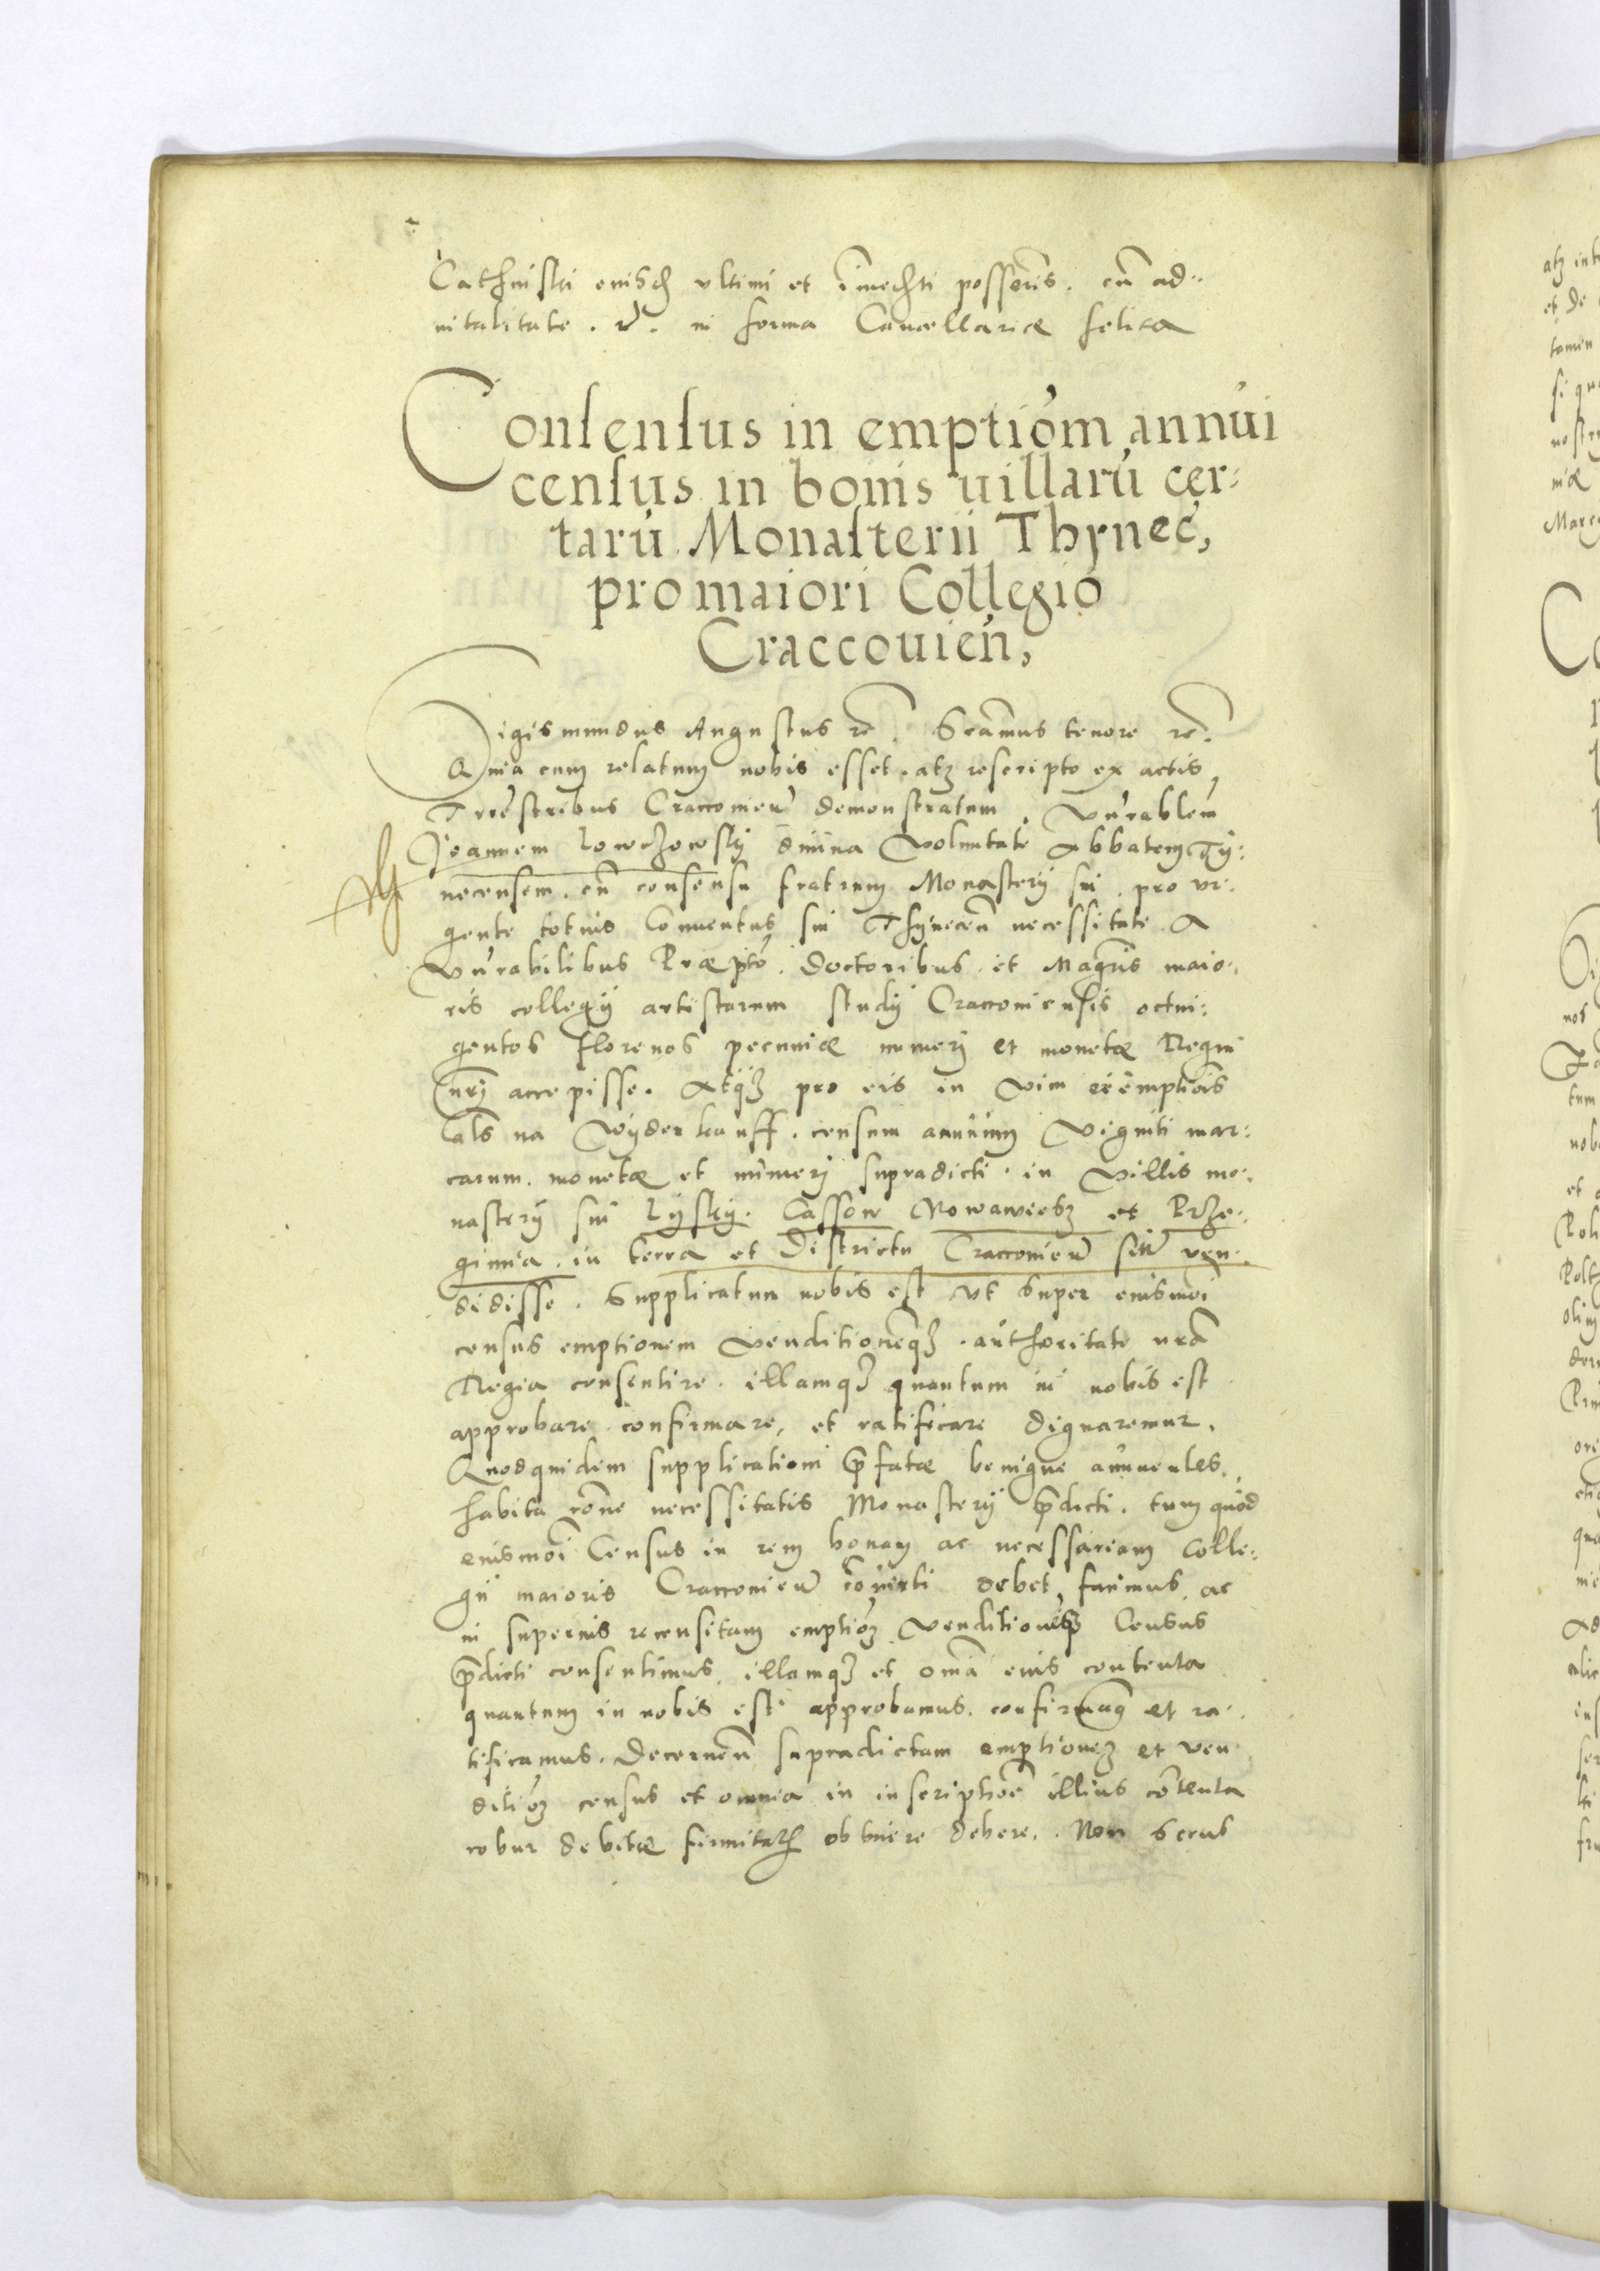 Cathinski eiusdem ultimi et immediati possessoris. cũ ad-
vitalitate. in forma Cancellariæ solita
Consensus in emptiom annui
census in bonis uillarũ cer-
tarũ Monasterii Thynec,
pro maiori Collegio
Craccouień,
Sigismundus Augustus rc. Scamus tenore rc.
Quia cum relatum nobis esset. atq rescripto ex actis
Terrestribus Craccouien demonstratum, Vnrablem
Joannem Lowczowsky diuina Voluntate Abbatem Ty-
necensem. cũ consensu fratrum Monastery sui. pro vr-
gente totius Conuentus sui Thynecen necessitate. A
Vnrabilibus Præpto. doctoribus. et Magris maio-
ris collegij artistarum study Craccouiensis octin-
gentos florenos pecuniæ numeri et monetæ Regni
nri accepisse. Atq pro eis in vim reemptiois
als na Wyderkauff. censum annuum Viginti mar-
carum. monetæ et numeri supradicti. in Villis mo-
nastery sui Lysky. Cassow Nowawiesz et Prze-
ginia. in terra et Districtu Craccouien sitis ven-
didisse. Supplicatum nobis est vt super eiusmoi
census emptionem Venditioneq. authoritate nra
Regia consentire. illamq quantum in nobis est
approbare. confirmare, et ratificare dignaremur.
Quodquidem supplicationi pfatæ benigne annuentes,
habita rone necessitatis Monastery pdicti. tum quod
eiusmoi Census in rem bonam ac necessariam Colle-
gii maioris Craccouien conuerti debet, faimus ac
in superius recensitam emptioz Venditioneq Census
pdicti consentimus, illamq et omia eius contenta
quantum in nobis est approbamus. confirmaq et ra-
tificamus. Decernen supradictam emptionez et ven
ditioz census et omnia in inscriptioe illius cotenta
robur debitæ firmitatis obtinere debere. Non secus